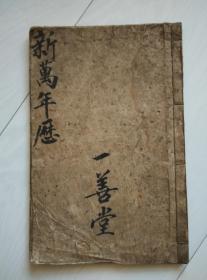 新萬年曆
一善堂